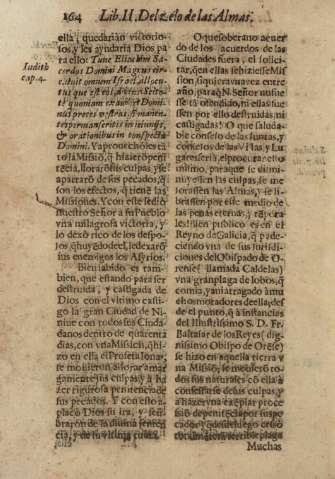 264 Lib. II. Del zelo de las Almas.
ella, quedarian victorio-
sos, y les ayudaria Dios pa
ra ello: Tunc Eliachim Sa-
Iudith
cap. 4.
cerdos Domini Magnus cir-
cuivit omnem Israel,
quoniam
nus preces vestras, si manen-
tes permanseritis in ieiunijs,
& orationibus in conspectu
Domini. Y aprovechòles tã
to la Missiõ, q̃ hizierõ peni
tẽcia, llorarõ sus culpas, y se
apartarõ de sus pecados, q̃
son los efectos, q̃ tienẽ las
Missiones. Y con esto
nuestro Señor a su Pueblo
vna milagrosa victoria, y
lo dexò rico de los despo-
jos,
sus enemigos los Assyrios.
Bien sabido es tam-
bien, que estando para ser
destruida, y castigada de
Dios con el vltimo casti-
go la gran Ciudad de Ni-
nive con todos sus Ciuda-
danos dentro de quarenta
dias, con vna Missiõn, q̃ hi-
zo en ella el Profeta Ionas,
se movieron a llorar amar
gamente sus culpas, y à ha
zer rigurosa penitencia de
sus pecados. Y con esto a-
placò Dios su ira, y
braron de la divina senten
cia, y de su vltima ruina.
O que soberano acuer
do de los acuerdos de las
Ciudades fuera, el solici-
tar, q̃ en ellas se hiziesse Mis
sion, siquiera vna vez entre
año, para q̃ N. Señor no fue
sse tã ofendido, ni ellas fue
ssen por ello destruidas, ni
castigadas! O que saluda-
ble consejo de las Iuntas, y
consejos de las Villas, y Lu
gares seria, el procurar esto
mismo, paraque se dismi-
nuyessen las culpas, se me-
jorassen las Almas, y se li-
brassen por este medio de
las penas eternas,
Reyno de Galicia, q̃ pade-
ciendo vna de sus jurisdi-
ciones del Obispado de O-
rense (llamada Caldelas)
vna gran plaga de lobos, q̃
comia, y avia tragado à mu
chos moradores de ella; des
de el punto, q̃ à instancia
del Illustrissimo S. D. Fr.
Baltasar de los Reyes (dig-
nissimo Obispo de Orẽse)
se hizo en aquella tierra v
na Missiõ, se movierõ to-
dos sus naturales cõ ella à
confessarse de sus culpas, y
à hazer vna exẽplar proces
siõ de penitẽcia por sus pe
cados,
Muchas